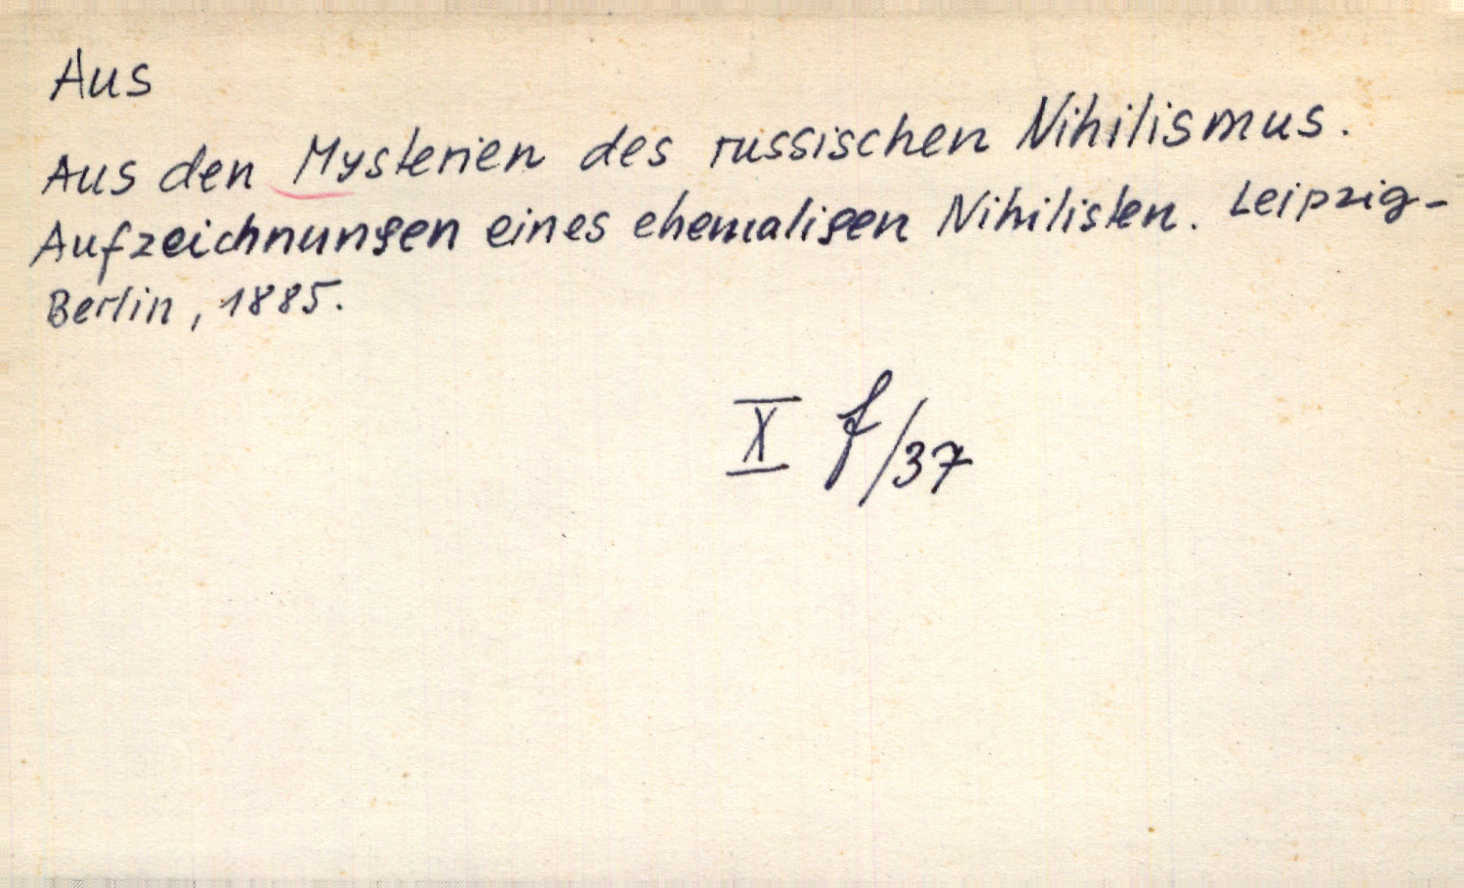 Aus
Aus den Mysterien des russischen Nihilismus.
Aufzeichnungen eines ehemaligen Nihilisten. Leipzig-
Berlin, 1885.
X f/37